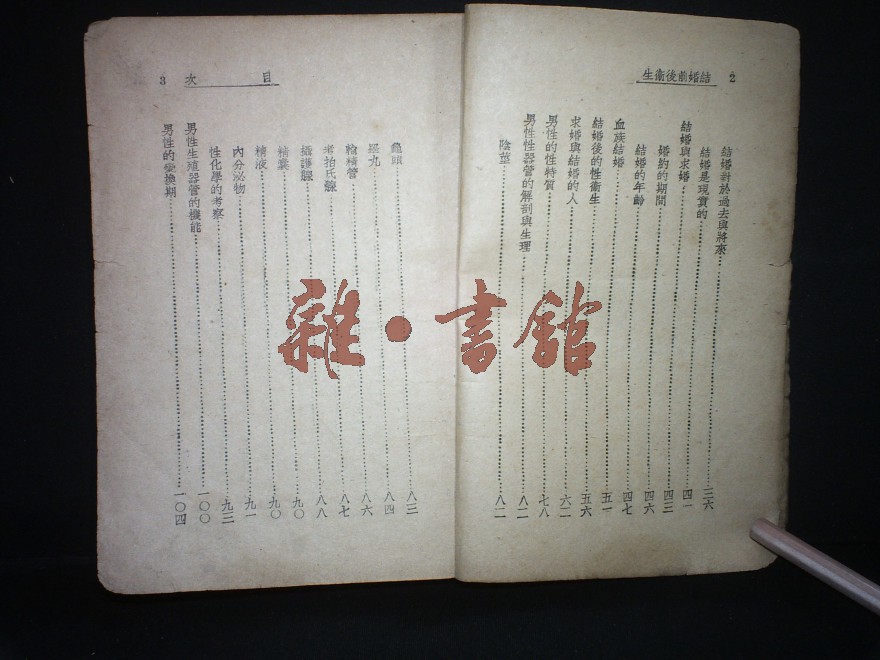 2 結婚前後衞生
結婚對於過去與將來……三六
結婚是現實的……四一
結婚與求婚……四三
婚約的期間……四六
結婚的年齡……四七
血族結婚……五一
結婚後的性衞生……五六
求婚與結婚的人……六二
男性的性特質……七八
男性性器管的解剖與生理……八二
陰莖……八二
目次 3
龜頭……八三
睪丸……八四
輸精管……八六
攝護腺……九〇
精囊……九〇
精液……九一
內分泌物……九三
性化學的考察
男性生殖器管的機能……一〇〇
男性的變換期……一〇四
雜·書館